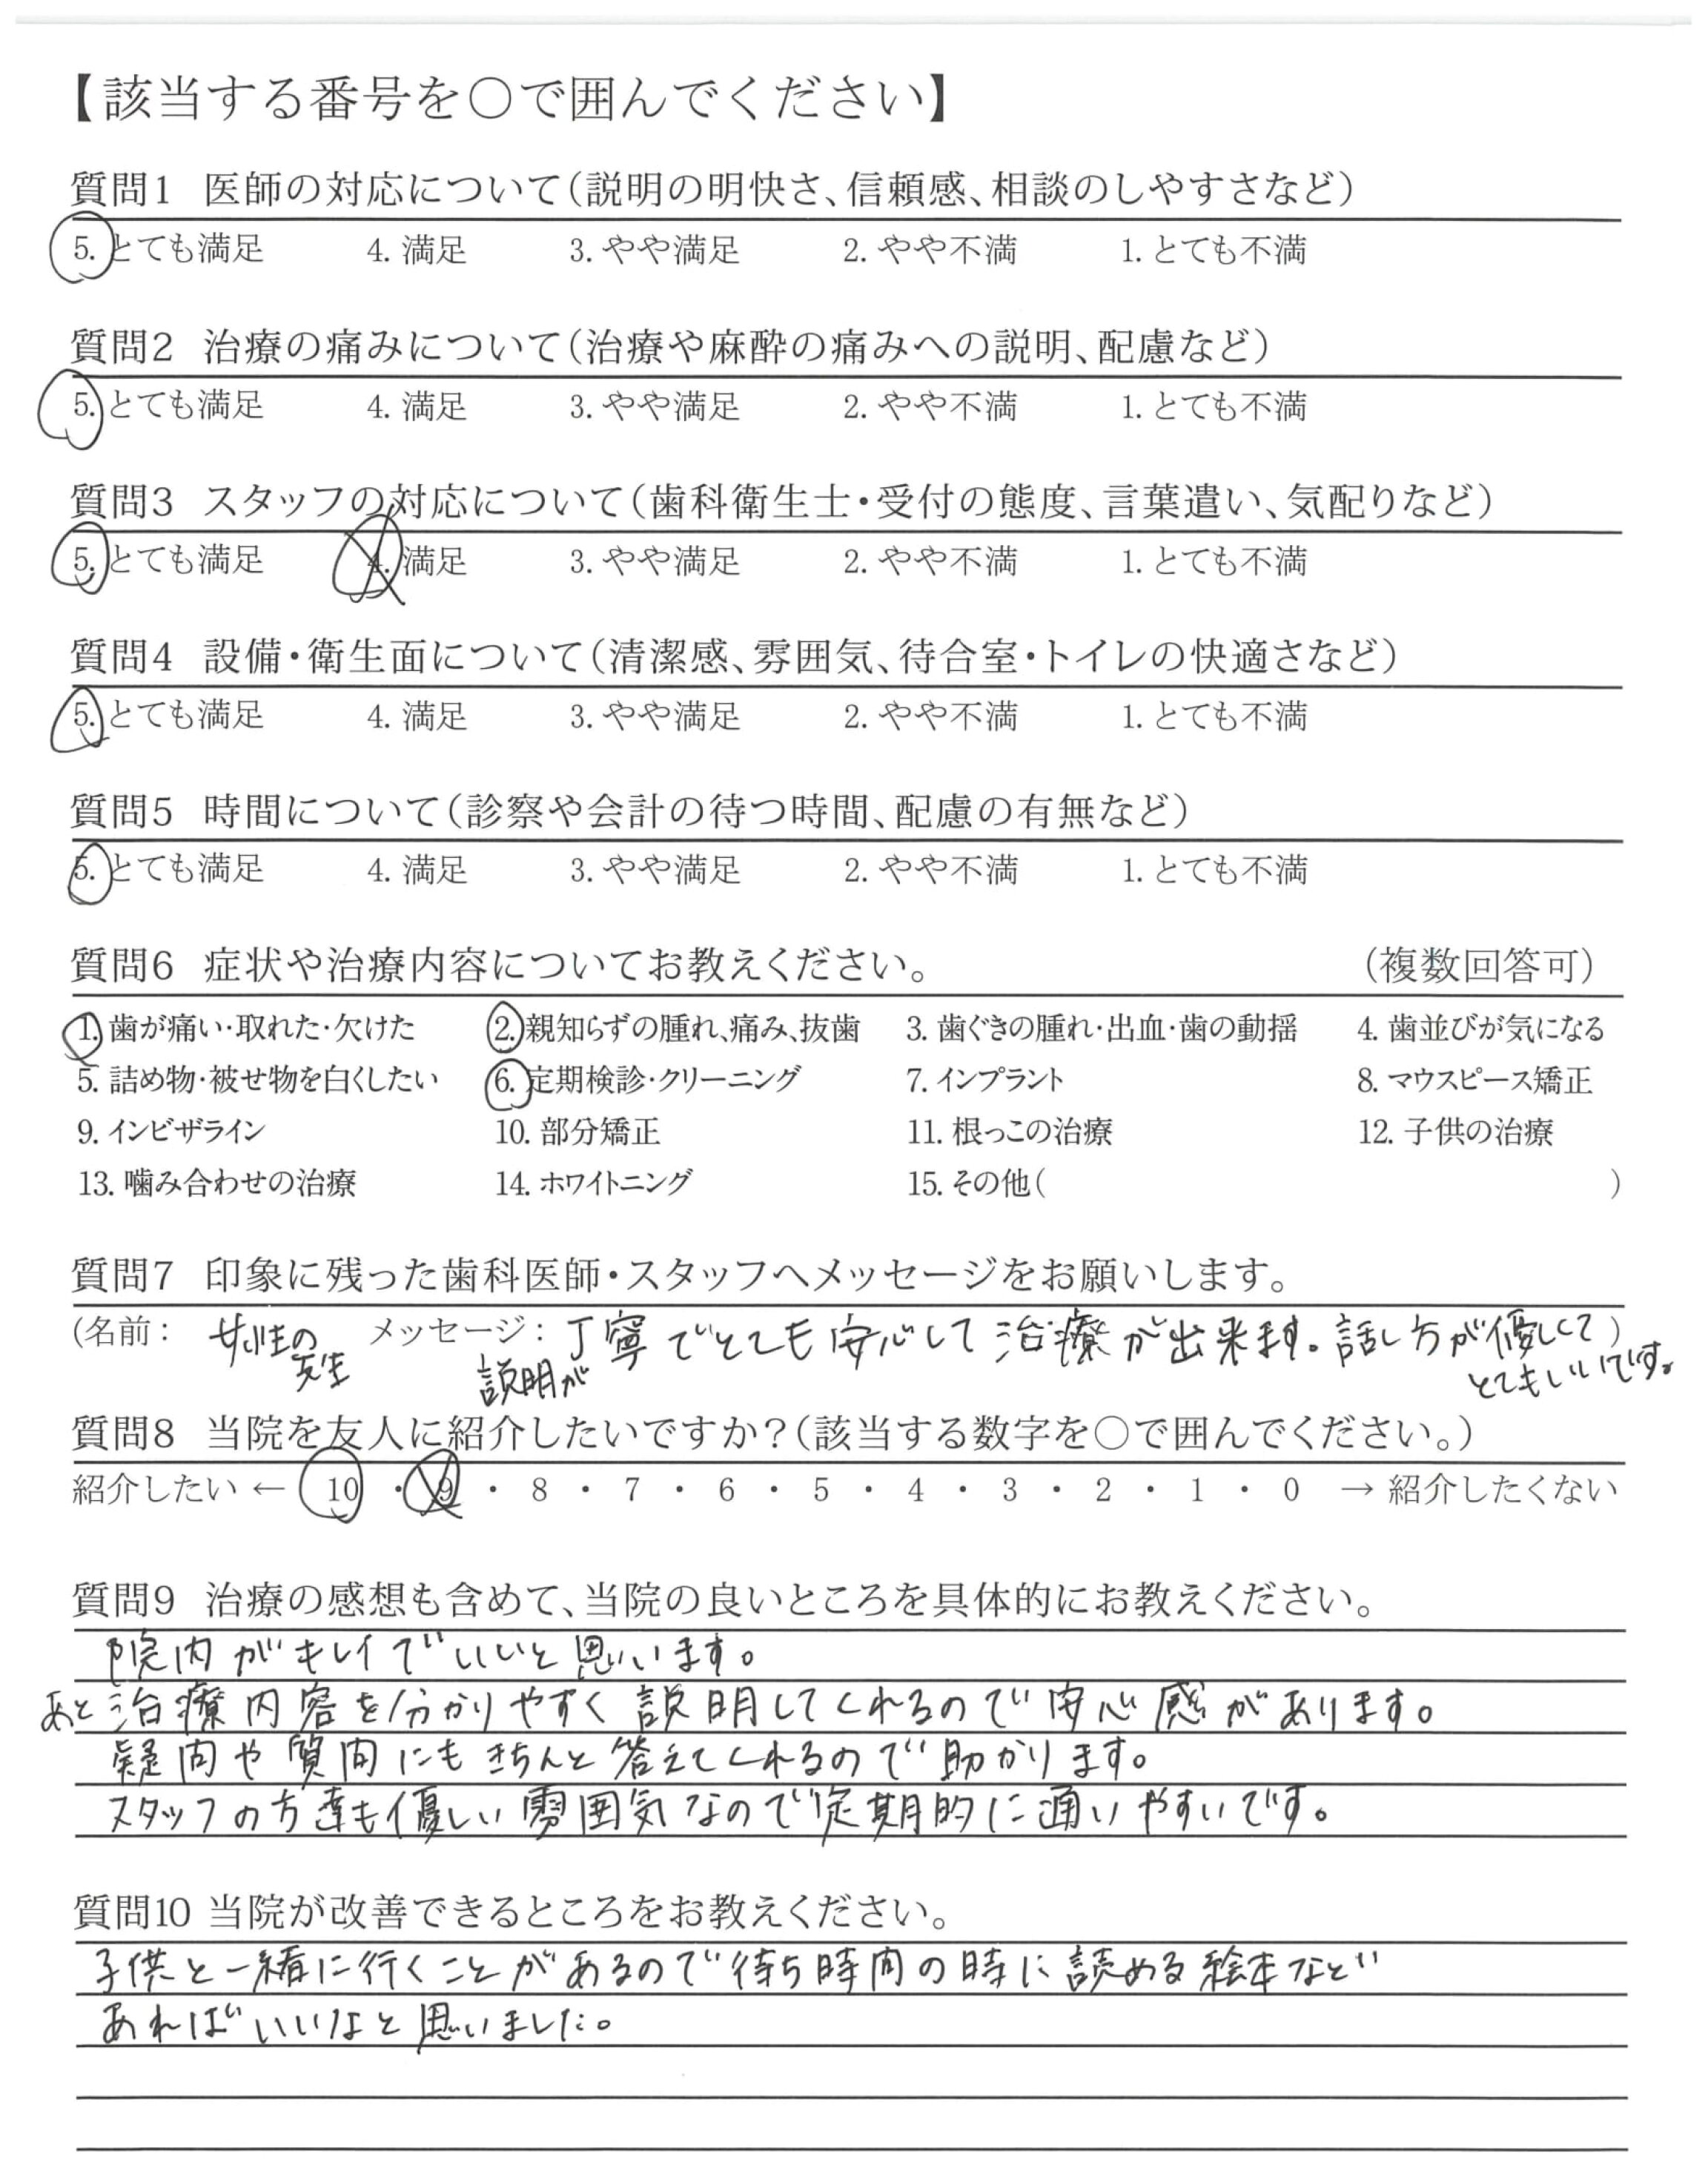 【該当する番号を○で囲んでください】
質問1 医師の対応について(説明の明快さ、信頼感、相談のしやすさなど)
5. とても満足 4. 満足 3. やや満足 2. やや不満 1. とても不満
質問2 治療の痛みについて(治療や麻酔の痛みへの説明、配慮など)
5. とても満足 4. 満足 3. やや満足 2. やや不満 1. とても不満
質問3 スタッフの対応について(歯科衛生士・受付の態度、言葉遣い、気配りなど)
5. とても満足 4. 満足 3. やや満足 2. やや不満 1. とても不満
質問4 設備・衛生面について(清潔感、雰囲気、待合室・トイレの快適さなど)
5. とても満足 4. 満足 3. やや満足 2. やや不満 1. とても不満
質問5 時間について(診察や会計の待つ時間、配慮の有無など)
5. とても満足 4. 満足 3. やや満足 2. やや不満 1. とても不満
質問6 症状や治療内容についてお教えください。 (複数回答可)
1. 歯が痛い・取れた・欠けた 2. 親知らずの腫れ、痛み、抜歯 3. 歯ぐきの腫れ・出血・歯の動揺 4. 歯並びが気になる
5. 詰め物・被せ物を白くしたい 6. 定期検診・クリーニング 7. インプラント 8. マウスピース矯正
9. インビザライン 10. 部分矯正 11. 根っこの治療 12. 子供の治療
13. 噛み合わせの治療 14. ホワイトニング 15. その他( )
質問7 印象に残った歯科医師・スタッフへメッセージをお願いします。
(名前: 女性の先生 メッセージ: 説明が丁寧でとても安心して治療が出来ます。話し方が優しくて)
とてもいいです。
質問8 当院を友人に紹介したいですか?(該当する数字を○で囲んでください。)
紹介したい ← 10 ・ 9 ・ 8 ・ 7 ・ 6 ・ 5 ・ 4 ・ 3 ・ 2 ・ 1 ・ 0 → 紹介したくない
質問9 治療の感想も含めて、当院の良いところを具体的にお教えください。
院内がキレイでいいと思います。
あと治療内容を分かりやすく説明してくれるので安心感があります。
疑問や質問にもきちんと答えてくれるので助かります。
スタッフの方達も優しい雰囲気なので定期的に通いやすいです。
質問10 当院が改善できるところをお教えください。
子供と一緒に行くことがあるので待ち時間の時に読める絵本など
あればいいなと思いました。